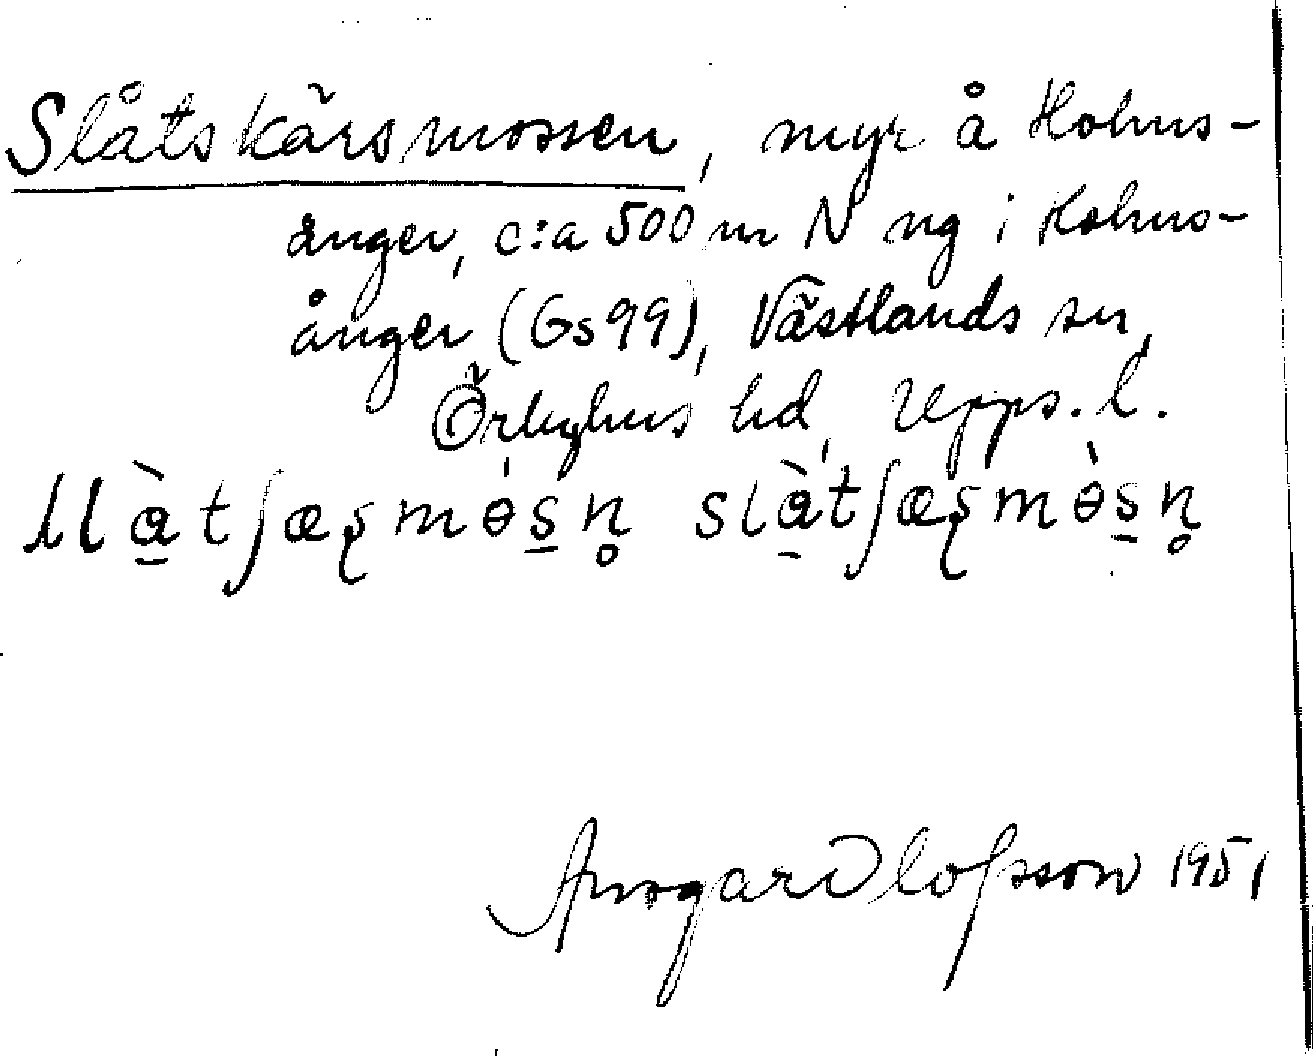 Slåtskärsmossen, myr å Hohus-
änger, c:a 500 m N ng i Hohus-
änger (Gs 99), Västlands sn,
Örbyhus hd, Upps. l.
slàtʃæʂmòsn̥ slàtʃæʂmòsn̥
Ansgar Olofsson 1951